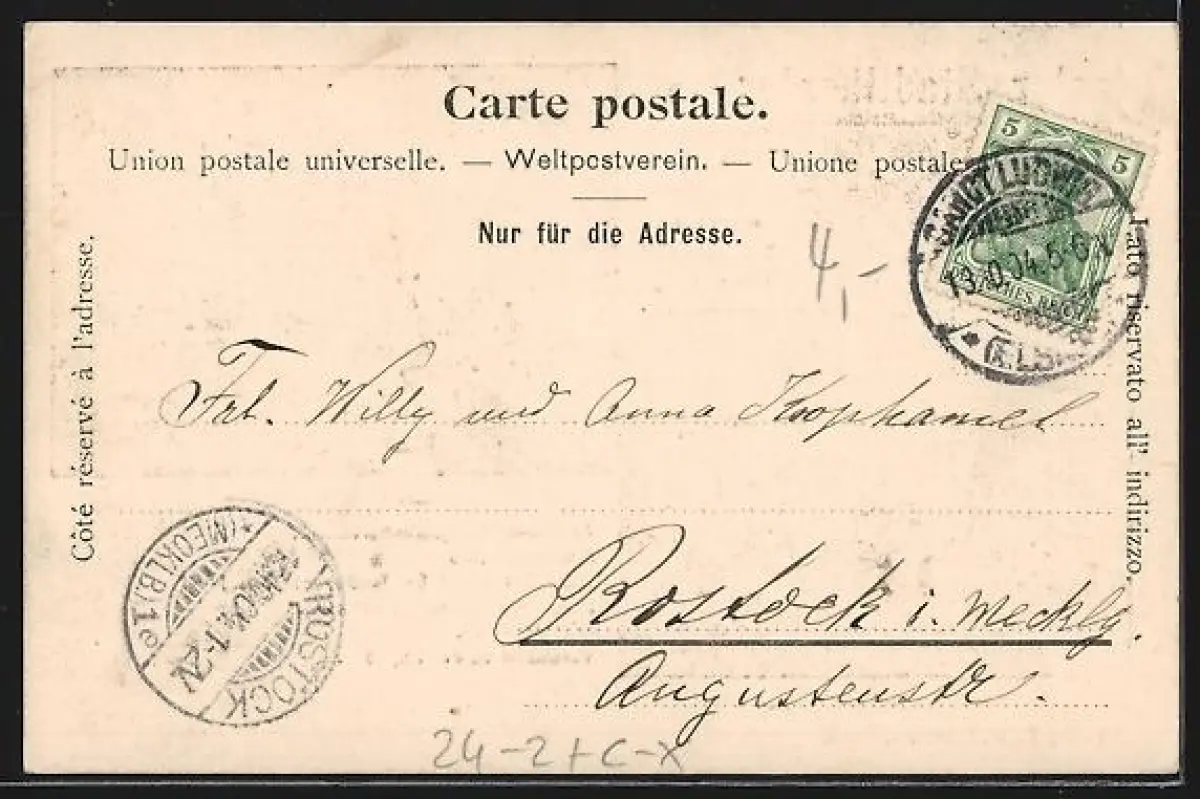 Carte postale.
Union postale universelle. — Weltpostverein. — Unione postale
Nur für die Adresse.
Côté réservé à l'adresse.
Lato riservato all' indirizzo.
5 5
SANCT LUDWIG
(ELS.)
4,-
Frl. Willy und Anna Koophamel
Rostock i. Mecklg.
Augustenstr.
ROSTOCK
*(MECKLB)1e
1-2N
24-2+C-X